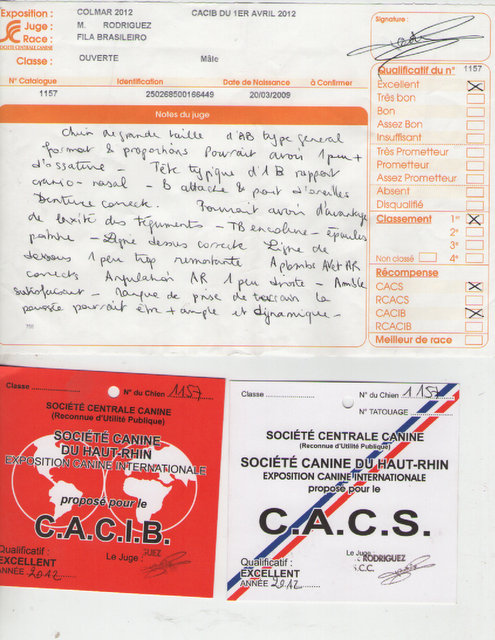 Exposition : COLMAR 2012 CACIB DU 1ER AVRIL 2012
Juge : M. RODRIGUEZ
Race : FILA BRASILEIRO
SOCIÉTÉ CENTRALE CANINE
Classe : OUVERTE Mâle
Signature :
N° Catalogue Identification Date de Naissance à Confirmer
1157 250268500166449 20/03/2009
Notes du juge
Chien de grande taille d'AB type general
format & proportions Pourrait avoir 1 peu +
d'ossature - Tête typique d'1 B rapport
cranio-nasal - B attache & port d'oreilles
Denture correcte. Pourrait avoir d'avantage
de laxité des téguments - TB encolure - épaules
poitrine - Ligne dessus correcte Ligne de
dessous 1 peu trop remontante Aplombs AV et AR
corrects Angulation AR 1 peu droite - Amble
satisfaisant - Manque de prise de terrain la
poussée pourrait être + ample et dynamique -
Qualificatif du n° 1157
Excellent
Très bon
Bon
Assez Bon
Insuffisant
Très Prometteur
Prometteur
Assez Prometteur
Absent
Disqualifié
Classement 1er
2e
3e
Non classé 4e
Récompense
CACS
RCACS
CACIB
RCACIB
Meilleur de race
Classe N° du Chien 1157
SOCIÉTÉ CENTRALE CANINE
(Reconnue d'Utilité Publique)
SOCIÉTÉ CANINE
DU HAUT-RHIN
EXPOSITION CANINE INTERNATIONALE
proposé pour le
C.A.C.I.B.
Qualificatif : Le Juge : GUEZ
EXCELLENT
ANNÉE 2012
Classe : N° du Chien 1157
N° TATOUAGE :
SOCIÉTÉ CENTRALE CANINE
(Reconnue d'Utilité Publique)
SOCIÉTÉ CANINE DU HAUT-RHIN
EXPOSITION CANINE INTERNATIONALE
proposé pour le
C.A.C.S.
Qualificatif : Le Juge :
EXCELLENT RODRIGUEZ
ANNÉE 2012 S.C.C.